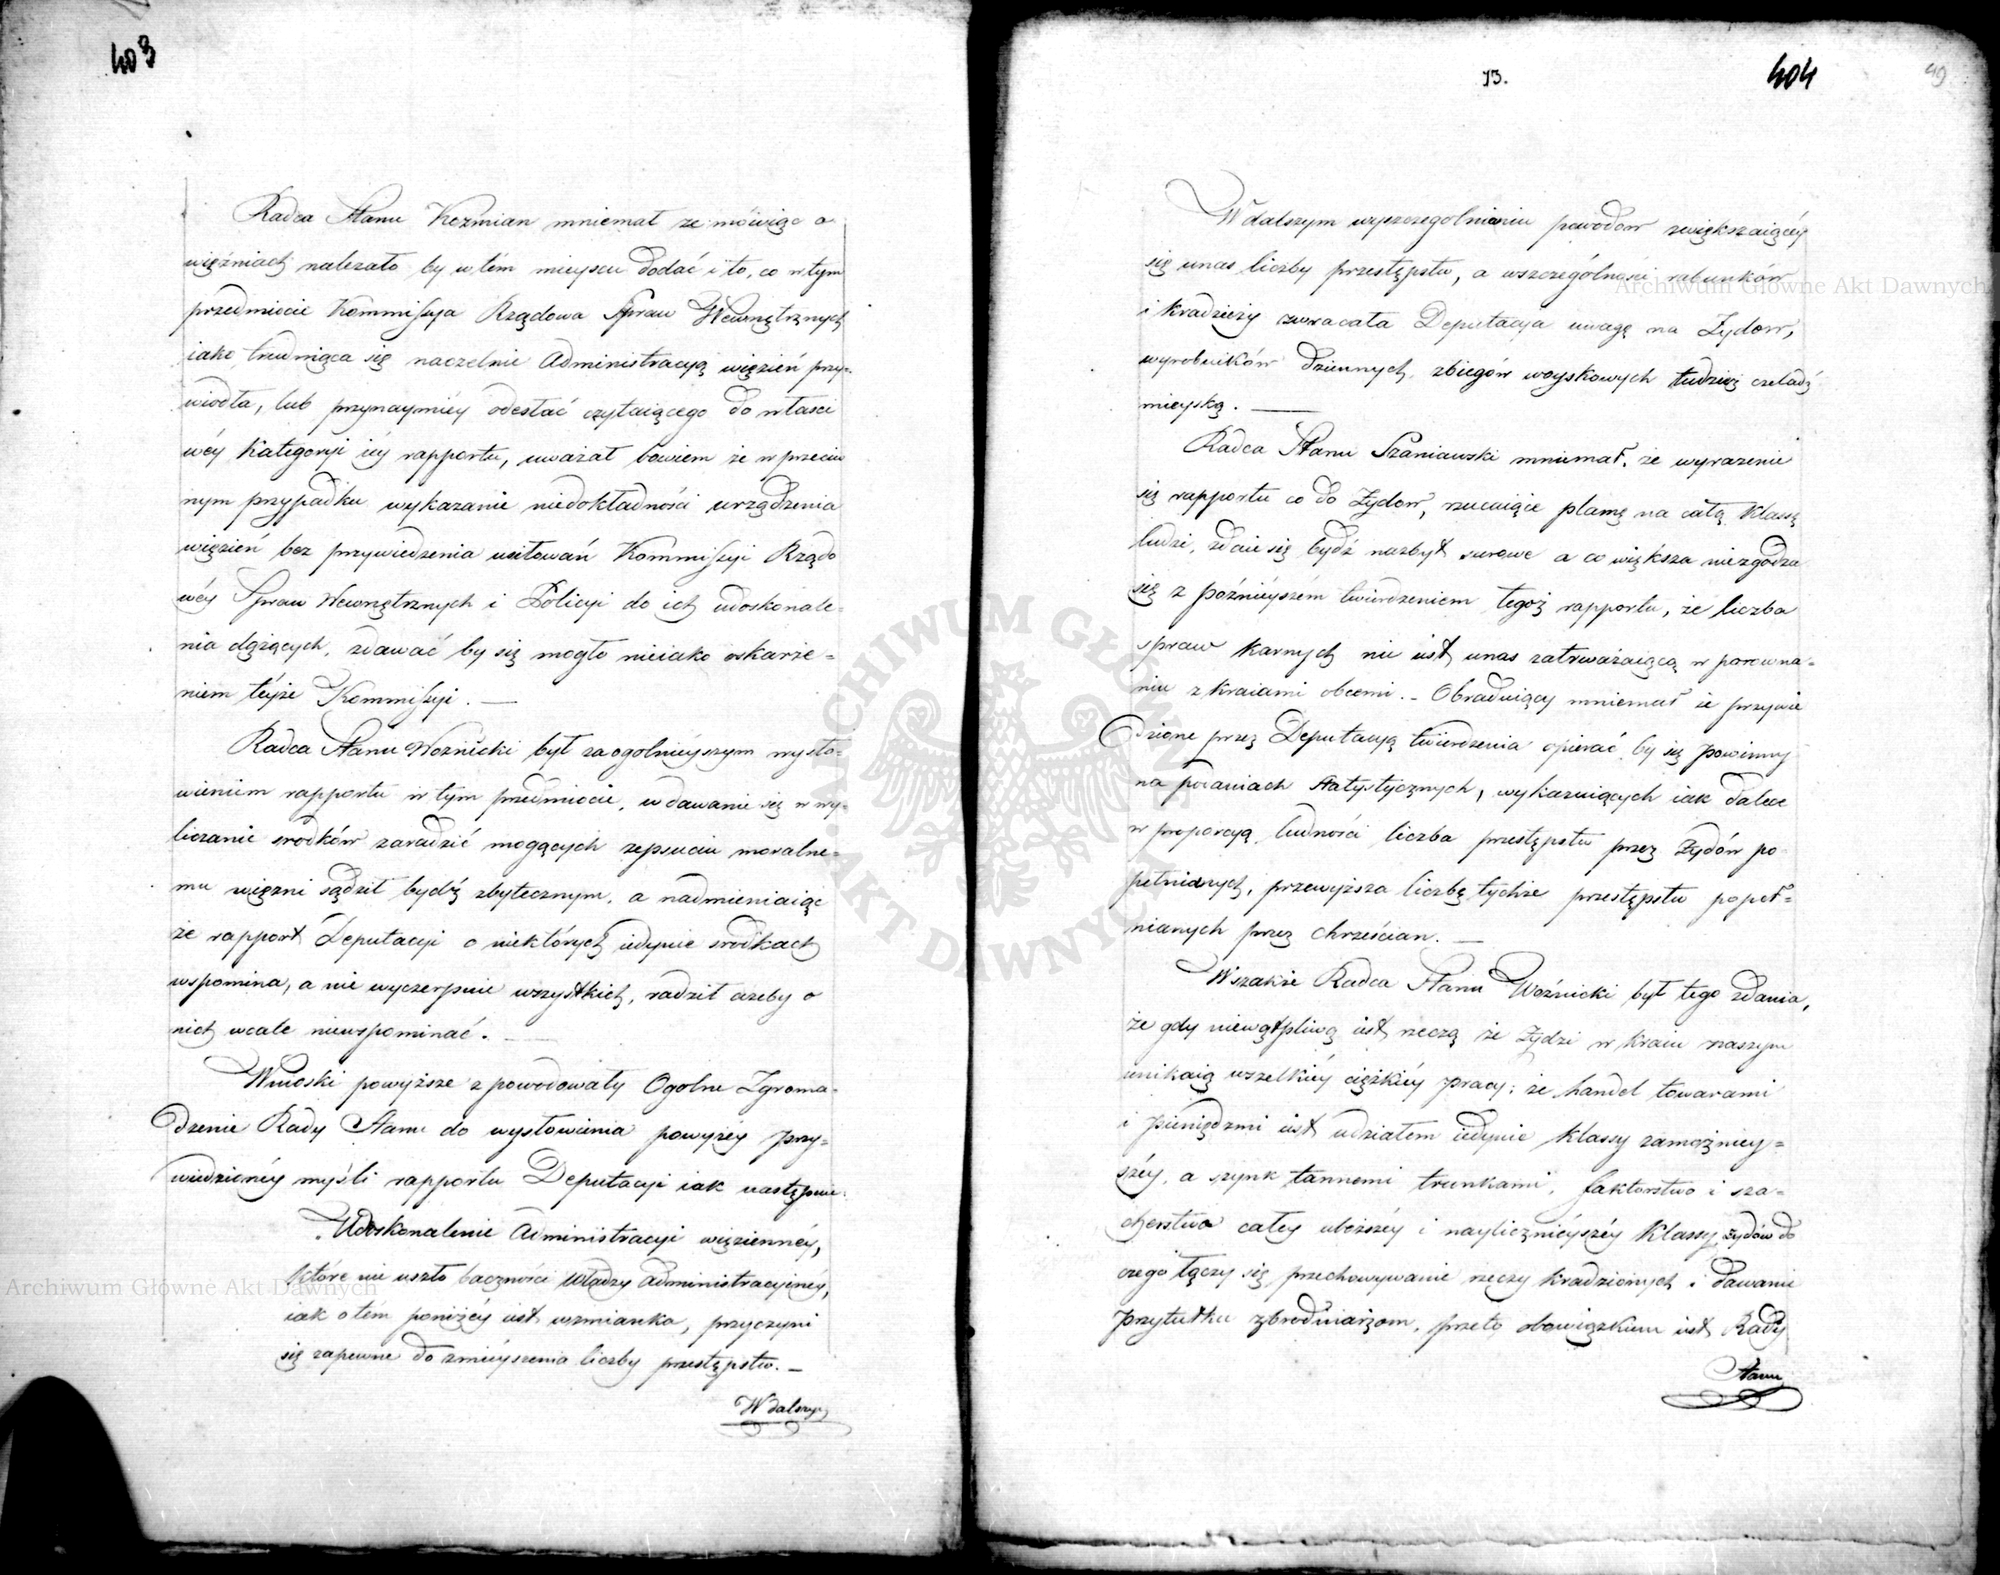 403
Radca Stanu Koźmian mniemał że mówiąc o
więźniach należało by w tém mieyscu dodać i to, co w tym
przedmiocie Kommissya Rządowa Spraw Wewnętrznych
iako trudniąca się naczelnie Administracyą więzień przy=
wiodła, lub przynaymniéy odesłać czytaiącego do właści
wéy Kategoryi iéy rapportu, uważał bowiem że w przeciw
nym przypadku wykazanie niedokładności urządzenia
więzień bez przywiedzenia usiłowań Kommissyi Rządo
wéy Spraw Wewnętrznych i Policyi do ich udoskonale=
nia dążących, zdawać by się mogło nieiako oskarże=
niem téyże Kommissyi. —
Radca Stanu Woźnicki był za ogolnieyszym wysło=
wieniem rapportu w tym przedmiocie, wdawanie się w wy=
liczanie srodków zaradzić mogących zepsuciu moralne=
mu więzni sądził bydź zbytecznym, a nadmieniaiąc
że rapport Deputacyi o niektórych iedynie srodkach
wspomina, a nie wyczerpuie wszystkich, radził ażeby o
nich wcale niewspominać. —
Wnioski powyższe spowodowały Ogolne Zgroma=
dzenie Rady Stanu do wysłowienia powyżéy przy=
wiedzionéy myśli rapportu Deputacyi iak następuie:
„Udoskonalenie Administracyi więziennéy,
które nie uszło baczności Władzy Administracyinéy,
iak o tém poniżéy iest wzmianka, przyczyni
się zapewne do zmnieyszenia liczby przestępstw. —
W dalszym
13.
404
49
W dalszym wyszczegolnieniu powodow zwiększaiącéy
się unas liczby przestępstw, a wszczególności rabunków
i kradzieży zwracała Deputacya uwagę na Żydow,
wyrobników dziennych, zbiegów woyskowych tudzież czeladź
mieyską. —
Radca Stanu Szaniawski mniemał, że wyrażenie
się rapportu co do Żydow, rzucaiące plamę na całą Klassę
ludzi, zdaie się bydź nazbyt surowe a co większa niezgadza
się z poźnieyszém twierdzeniem tegoż rapportu, że liczba
spraw karnych nie iest unas zatrważaiącą w porowna=
niu z kraiami obcemi. — Obraduiący mniemał że przywie
dzione przez Deputacyą twierdzenia opierać by się powinny
na podaniach statystycznych, wykazuiących iak dalece
w proporcyą ludności liczba przestępstw przez Żydów po
pełnianych, przewyższa liczbę tychże przestępstw popeł=
nianych przez chrześcian. —
Wszakże Radca Stanu Woźnicki był tego zdania,
że gdy niewątpliwą iest rzeczą że Żydzi w kraiu naszym
unikaią wszelkiéy ciężkiéy pracy; że handel towarami
i pieniędzmi iest udziałem iedynie klassy zamożniey=
széy, a szynk trunkami, faktorstwo i sza=
cherstwo całéy uboższéy i naylicznieyszéy Klassy Żydów do
czego łączy się przechowywanie rzeczy kradzionych i dawanie
przytułku zbrodniarzom, przeto obowiązkiem iest Rady
Stanu
Archiwum Główne Akt Dawnych
Archiwum Główne Akt Dawnych
ARCHIWUM GŁÓWNE AKT DAWNYCH